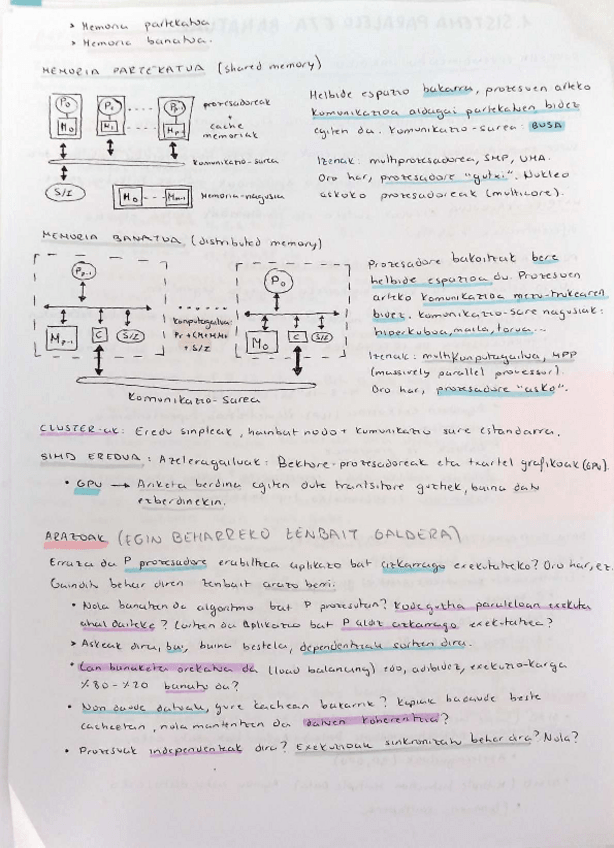 > Memoria partekatua
> Memoria banatua.
MEMORIA PARTEKATUA (shared memory)
P0 P1 Pp-1
M0
prozesadoreak
+
cache
memoriak
Komunikazio-sarea
S/I
M0 --- Mm-1
Memoria-nagusia
Helbide espazio bakarra, prozesuen arteko
komunikazioa aldagai partekatuen bidez
egiten da. Komunikazio-sarea: BUSA
Izenak: multiprozesadorea, SMP, UMA.
Oro har, prozesadore "gutxi". Nukleo
askoko prozesadoreak (multicore).
MEMORIA BANATUA (distributed memory)
Pp-1
Mp-1 C S/I
Konputagailua:
Pr + CM + MM
+ S/I
P0
M0 C S/I
Komunikazio-sarea
Prozesadore bakoitzak bere
helbide espazioa du. Prozesuen
arteko komunikazioa mezu-trukearen
bidez. Komunikazio-sare nagusiak:
hiperkuboa, maila, torua...
Izenak: multikonputagailua, MPP
(massively parallel processor).
Oro har, prozesadore "asko".
CLUSTER-ak: Eredu sinpleak, hainbat nodo + komunikazio sare estandarra.
SIMD EREDUA: Azeleragailuak: Bektore-prozesadoreak eta txartel grafikoak (GPU).
• GPU → Ariketa berdina egiten dute trantsitore guztiek, baina datu
ezberdinekin.
ARAZOAK (EGIN BEHARREKO ZENBAIT GALDERA)
Erraza da P prozesadore erabiltzea aplikazio bat azkarrago exekutatzeko? Oro har, ez.
Gainditu behar diren zenbait arazo berri:
• Nola banatzen da algoritmo bat P prozesutan? Kode guztia paraleloan exekuta
ahal daiteke? Lortzen da aplikazio bat P aldiz azkarrago exekutatzea?
> Askeak dira, bai, baina bestela, dependentziak sortzen dira.
• Lan banaketa orekatua da (load balancing) edo, adibidez, exekuzio-karga
%80-%20 banatu da?
• Non daude datuak, gure cachean bakarrik? Kopiak badaude beste
cacheetan, nola mantentzen da datuen koherentzia?
• Prozesuak independenteak dira? Exekuzioak sinkronizatu behar dira? Nola?